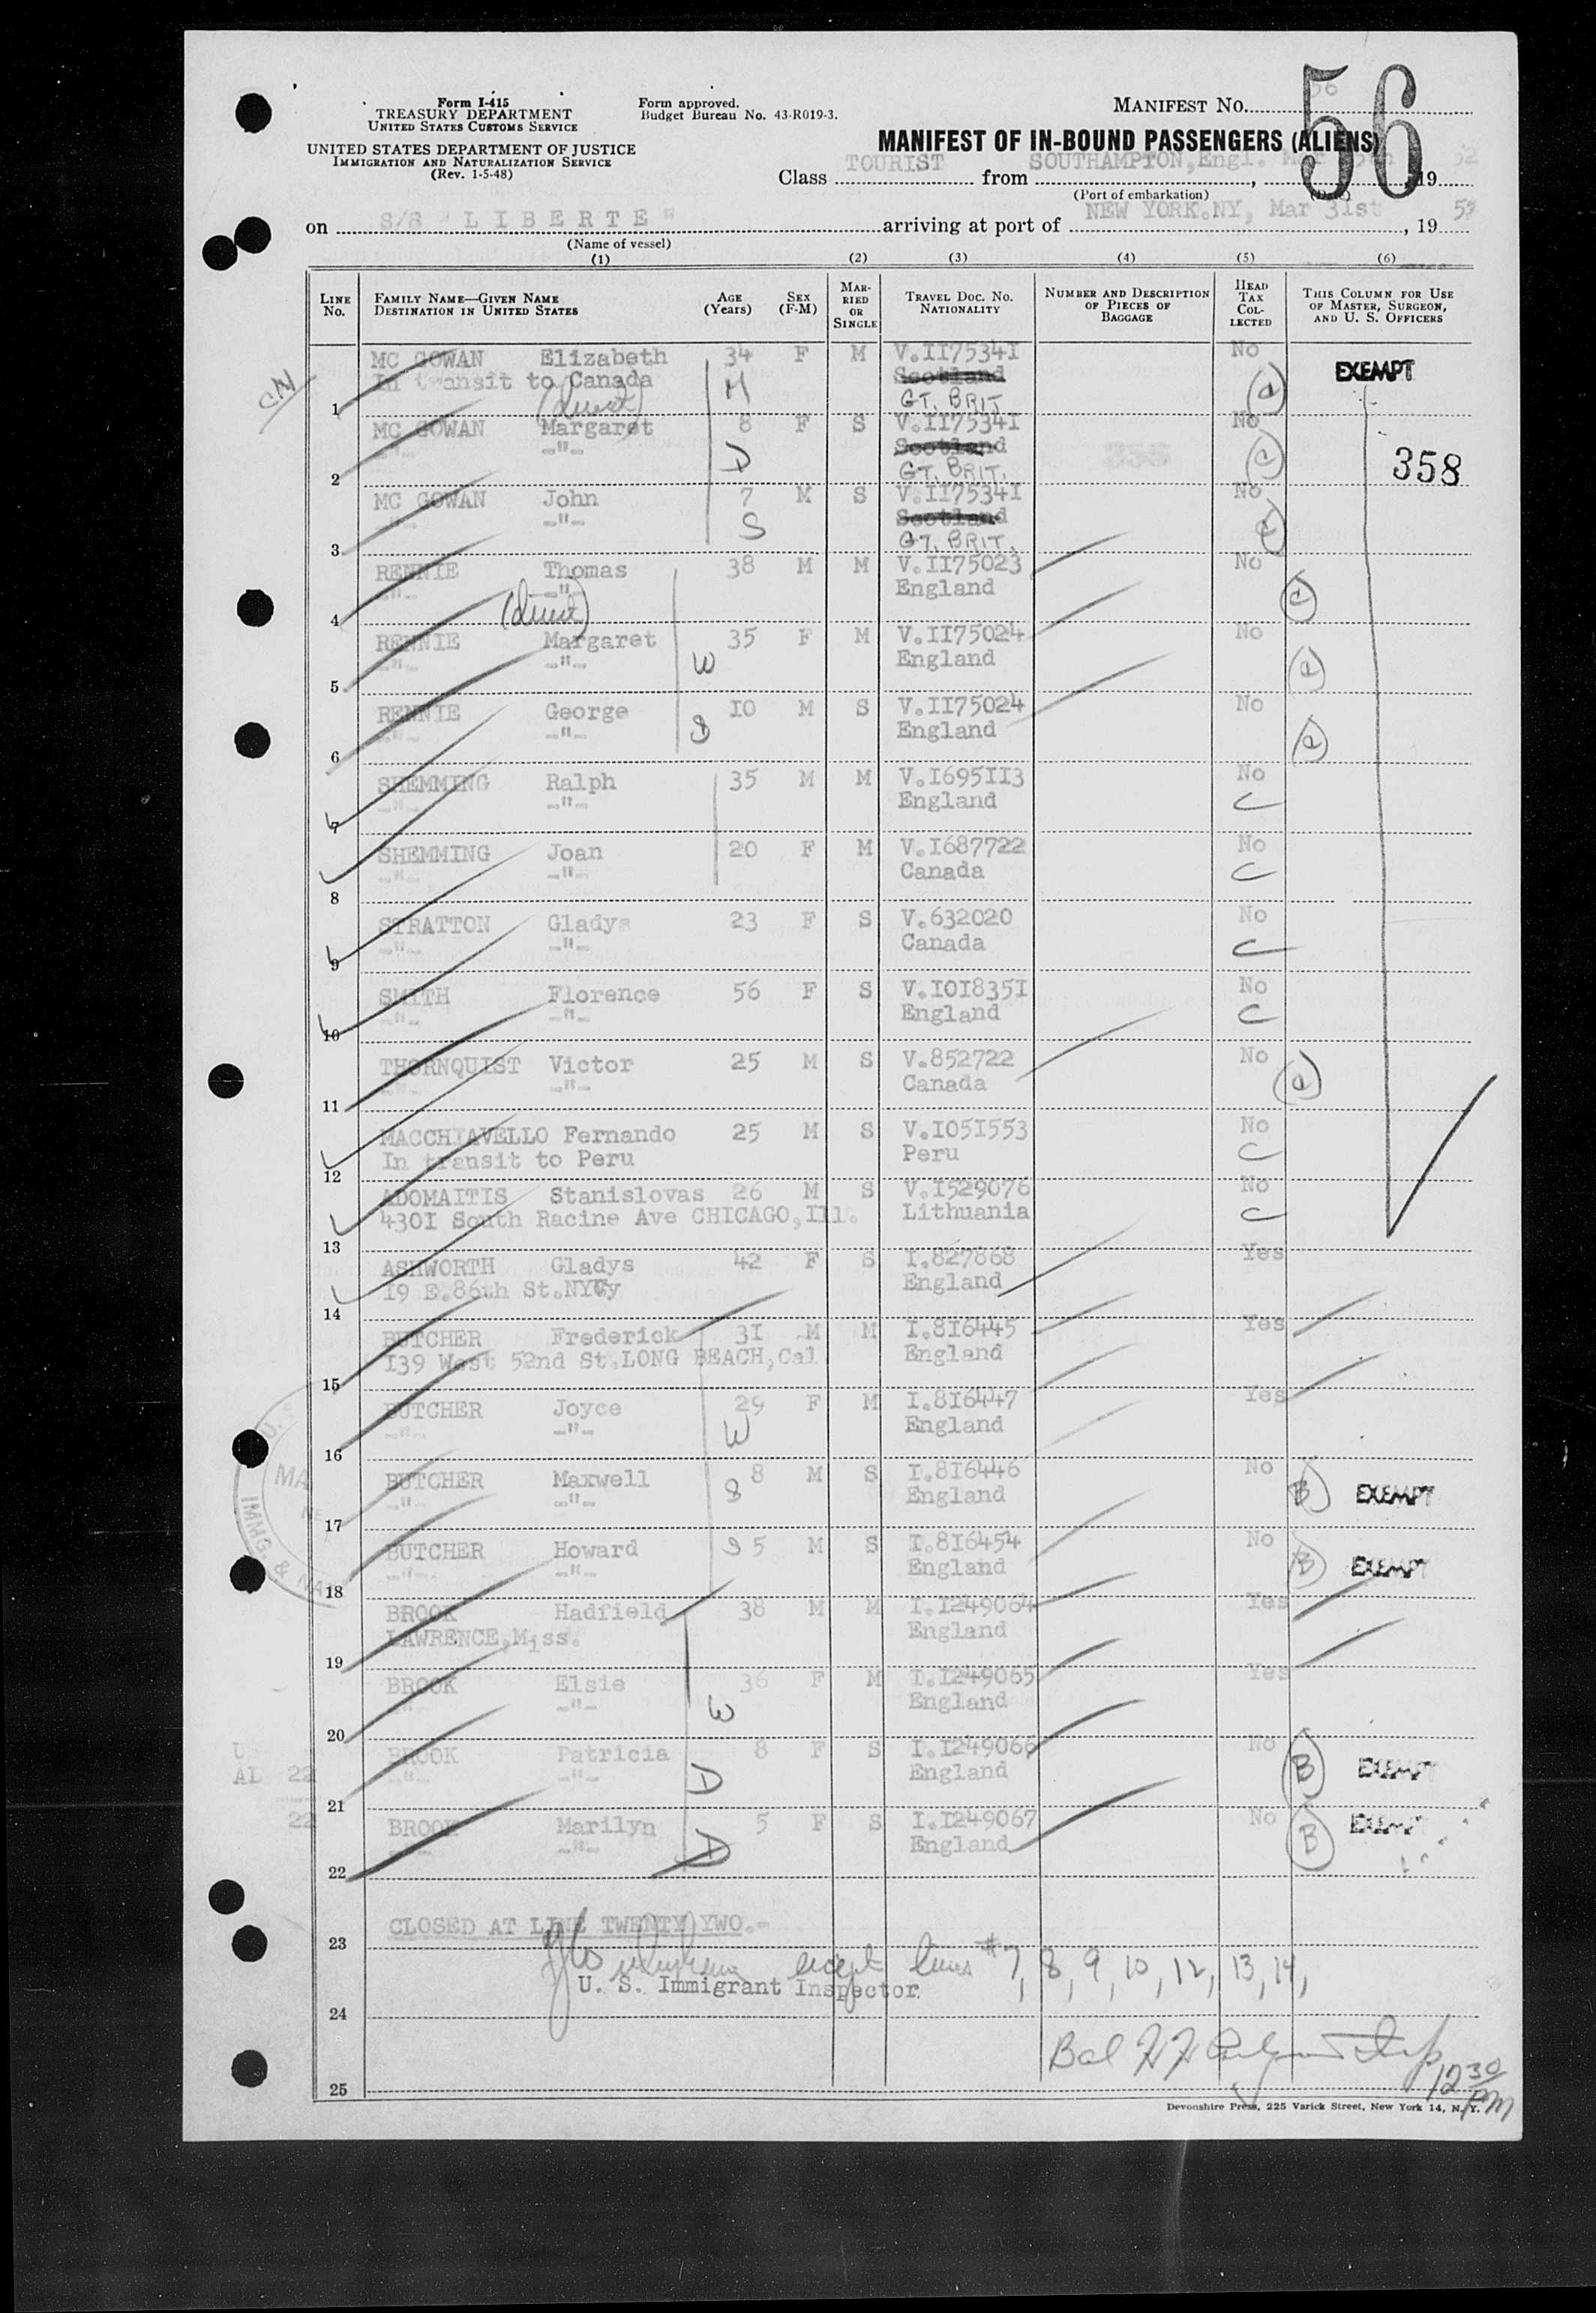 Form I-415
TREASURY DEPARTMENT
UNITED STATES CUSTOMS SERVICE
UNITED STATES DEPARTMENT OF JUSTICE
IMMIGRATION AND NATURALIZATION SERVICE
(Rev. 1-5-48)
Form approved.
Budget Bureau No. 43-R019-3.
MANIFEST No. 56
56
MANIFEST OF IN-BOUND PASSENGERS (ALIENS)
Class TOURIST from SOUTHAMPTON, Engl. , Mar , 19 52
(Port of embarkation) (Date)
on S/S "LIBERTE" arriving at port of NEW YORK.NY, Mar 31st , 19 52
(Name of vessel)
(1) (2) (3) (4) (5) (6)
LINE No. FAMILY NAME—GIVEN NAME DESTINATION IN UNITED STATES AGE (Years) SEX (F-M) MARRIED OR SINGLE TRAVEL DOC. NO. NATIONALITY NUMBER AND DESCRIPTION OF PIECES OF BAGGAGE HEAD TAX COLLECTED THIS COLUMN FOR USE OF MASTER, SURGEON, AND U. S. OFFICERS
MC GOWAN Elizabeth 34 F M V.II7534I No EXEMPT
In transit to Canada Scotland
1 (direct) GT. BRIT
MC GOWAN Margaret 8 F S V.II7534I No
-"- -"- D Scotland 358
2 GT. BRIT.
MC GOWAN John 7 M S V.II7534I No
-"- -"- S Scotland
3 GT. BRIT.
RENNIE Thomas 38 M M V.II75023 No
-"- -"- England
4 (direct)
RENNIE Margaret 35 F M V.II75024 No
-"- -"- W England
5
RENNIE George IO M S V.II75024 No
-"- -"- S England
6
SHEMMING Ralph 35 M M V.I695II3 No
-"- -"- England C
7
SHEMMING Joan 20 F M V.I687722 No
-"- -"- Canada C
8
STRATTON Gladys 23 F S V.632020 No
-"- -"- Canada C
9
SMITH Florence 56 F S V.IOI835I No
-"- -"- England C
10
THORNQUIST Victor 25 M S V.852722 No
-"- -"- Canada
11
MACCHIAVELLO Fernando 25 M S V.IO5I553 No
In transit to Peru Peru C
12
ADOMAITIS Stanislovas 26 M S V.I529076 No
430I South Racine Ave CHICAGO, Ill. Lithuania C
13
ASHWORTH Gladys 42 F S I.827868 Yes
I9 E.86th St. England
14
BUTCHER Frederick 3I M M I.8I6445 Yes
I39 West 52nd St.LONG BEACH,Cal England
15
BUTCHER Joyce 29 F M I.8I6447 Yes
-"- -"- W England
16
BUTCHER Maxwell 8 M S I.8I6446 No
-"- -"- S England B EXEMPT
17
BUTCHER Howard S 5 M S I.8I6454 No
-"- -"- England B EXEMPT
18
BROOK Hadfield 38 M M I.I249064 Yes
LAWRENCE,Miss. England
19
BROOK Elsie 36 F M I.I249065 Yes
-"- -"- W England
20
BROOK Patricia 8 F S I.I249066 No
-"- -"- D England B EXEMPT
21
BROOK Marilyn 5 F S I.I249067 No
-"- -"- D England B EXEMPT
22
CLOSED AT LINE TWENTY YWO.-
23
except lines #7, 8, 9, 10, 12, 13, 14,
U. S. Immigrant Inspector
24
Bal Insp
12 30 PM
25
Devonshire Press, 225 Varick Street, New York 14, N. Y.
IMMG. & NA
AL 22
22